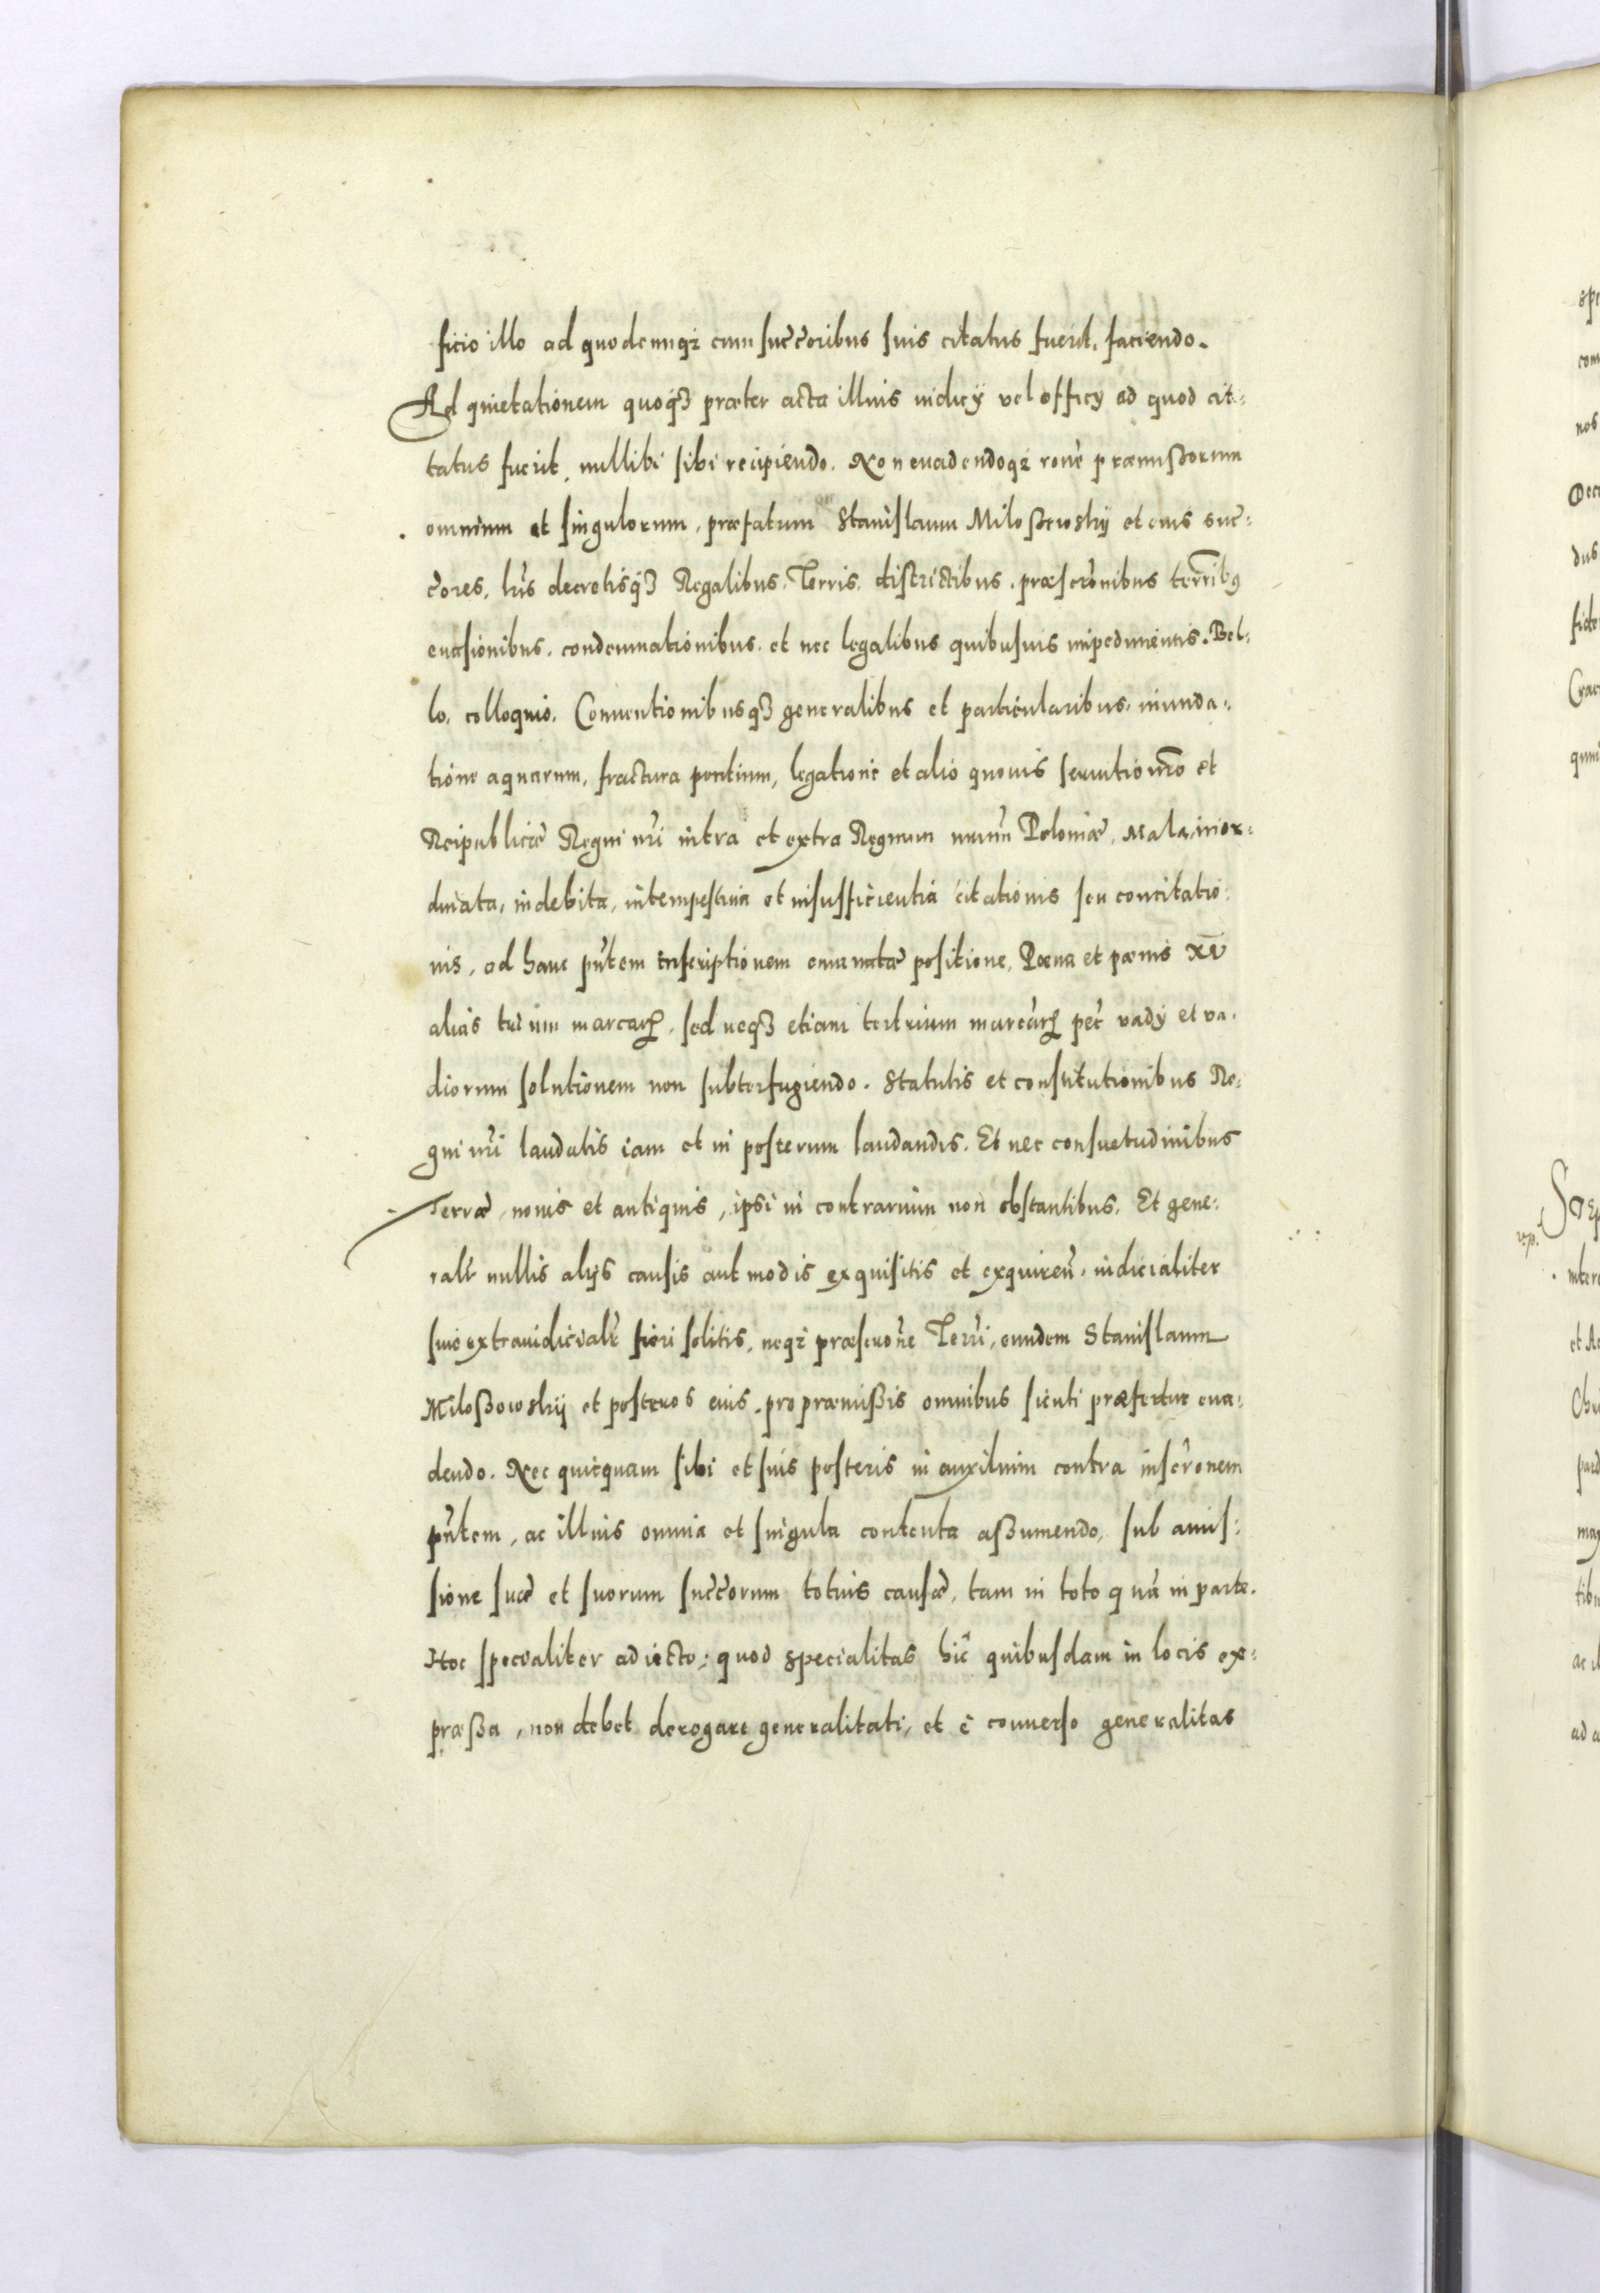 ficio illo ad quodcunqꝫ cum succoribus suis citatus fuerit, faciendo.
Ad quietationem quoqꝫ præter acta illius iudicÿ vel officÿ ad quod cit:
tatus fuerit, nullibi sibi recipiendo. Non euadendoqꝫ rone præmissorum
omnium et singulorum, præfatum Stanislaum Miloßewskÿ et eius suc:
cores, lris decretisqꝫ Regalibus, Terris, districtibus, præscronibus terribꝰ
euasionibus, condemnationibus, et nec legalibus quibusuis impedimentis. Bel:
lo, colloquio, Conuentionibusqꝫ generalibus et particularibus, inunda:
tione aquarum, fractura pontium, legatione et alio quouis seruitio nro et
Reipublicæ Regni nri intra et extra Regnum nrum Poloniæ, Mala, inor:
dinata, indebita, intempestiua et insufficientia citationis seu concitatio:
nis, ad hanc pntem inscriptionem emanatæ positione, Pœna et pœnis XV
alias trium marcarꝝ, sed neqꝫ etiam terrium marcarꝝ pec vadÿ et va:
diorum solutionem non subterfugiendo. Statutis et constitutionibus Re:
gni nri laudatis iam et in posterum laudandis. Et nec consuetudinibus
Terræ, nouis et antiquis, ipsi in contrarium non obstantibus. Et gene:
ralr nullis alÿs causis aut modis exquisitis et exquiren, iudicialiter
siue extraiudicialr fieri solitis, neqꝫ præscrone Terri, eundem Stanislaum
Miloßowskÿ et posteros eius, pro præmißis omnibus sicuti præfertur eua:
dendo. Nec quicquam sibi et suis posteris in auxilium contra inscronem
pntem, ac illius omnia et singula contenta aßumendo, sub amis:
sione suæ et suorum succorum totius causæ, tam in toto quā in parte.
Hoc specialiter adiecto; quod specialitas hic quibusdam in locis ex:
præßa, non debet derogare generalitati, et è conuerso generalitas